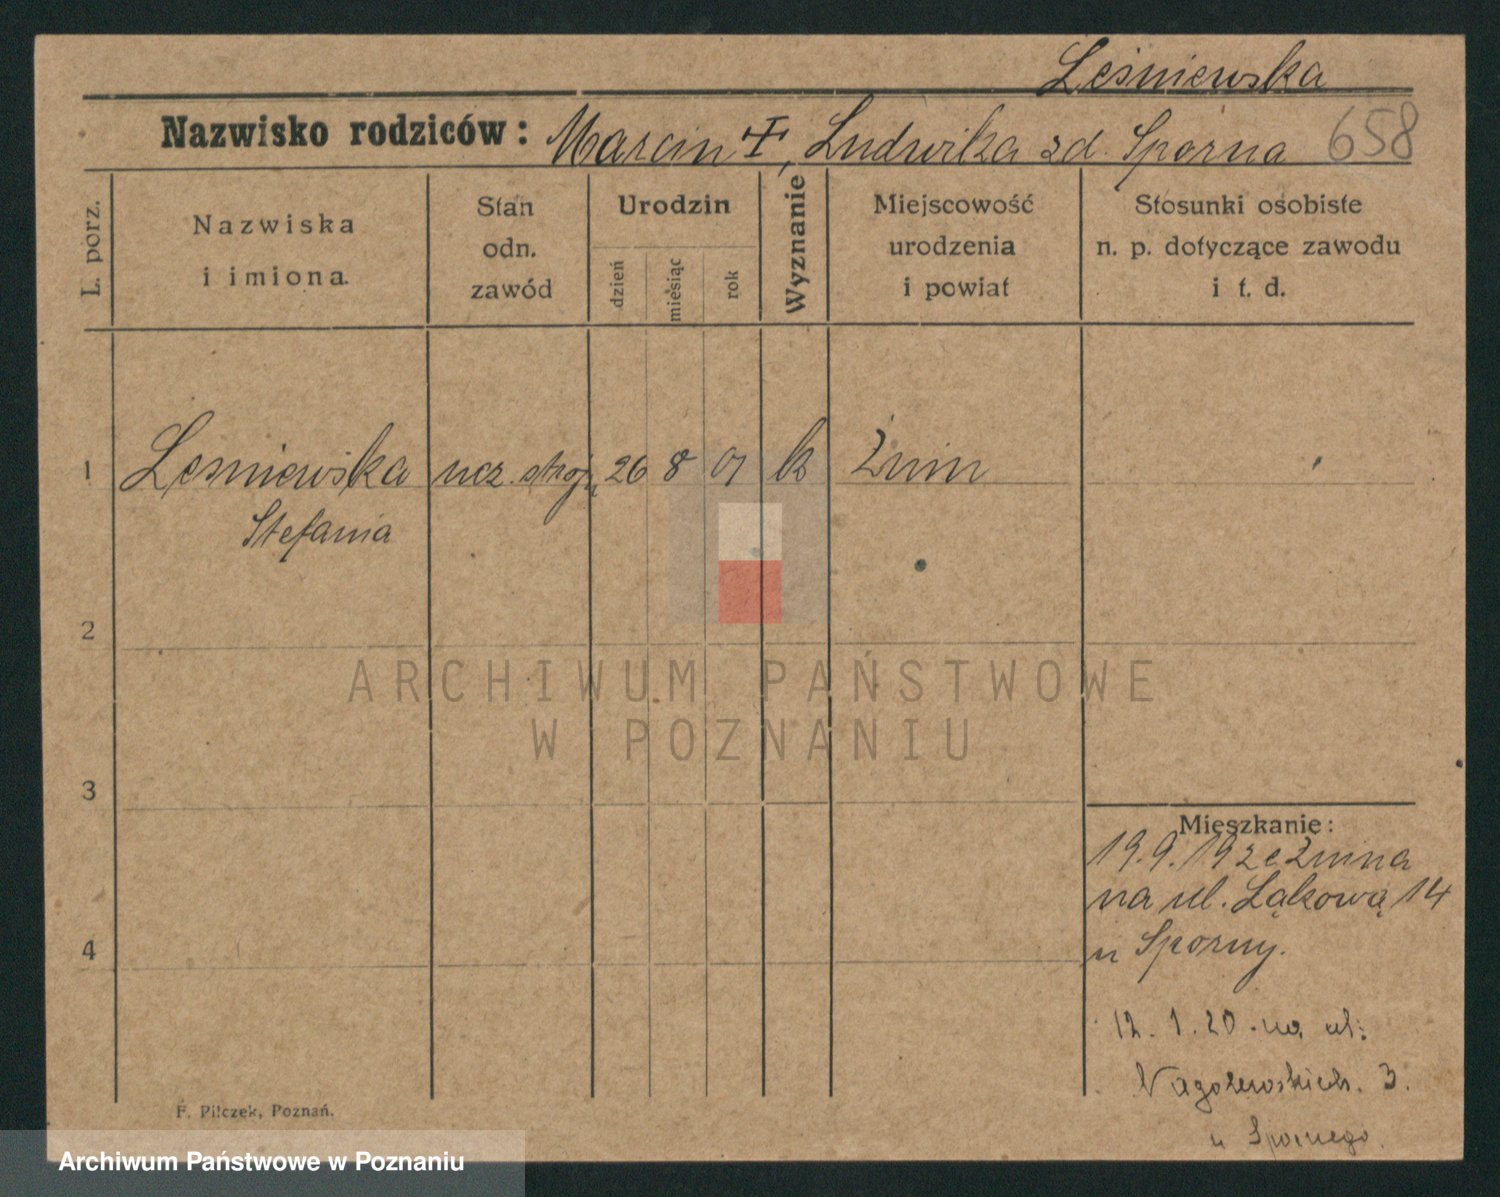 Leśniewska
Nazwisko rodziców: Marcin ☩, Ludwika zd. Sporna 658
L. porz.
Nazwiska
i imiona.
Stan
odn.
zawód
Urodzin
dzień
miesiąc
rok
Wyznanie
Miejscowość
urodzenia
i powiat
Stosunki osobiste
n. p. dotyczące zawodu
i t. d.
1 Leśniewska ucz. stroju 26 8 01 k Żnin
Stefania
2
ARCHIWUM PAŃSTWOWE
W POZNANIU
3
Mieszkanie:
19.9.19 ze Żnina
na ul. Łąkową 14
4
u Sporny.
12.1.20 na ul.
3.
u Spornego.
F. Pilczek, Poznań.
Archiwum Państwowe w Poznaniu